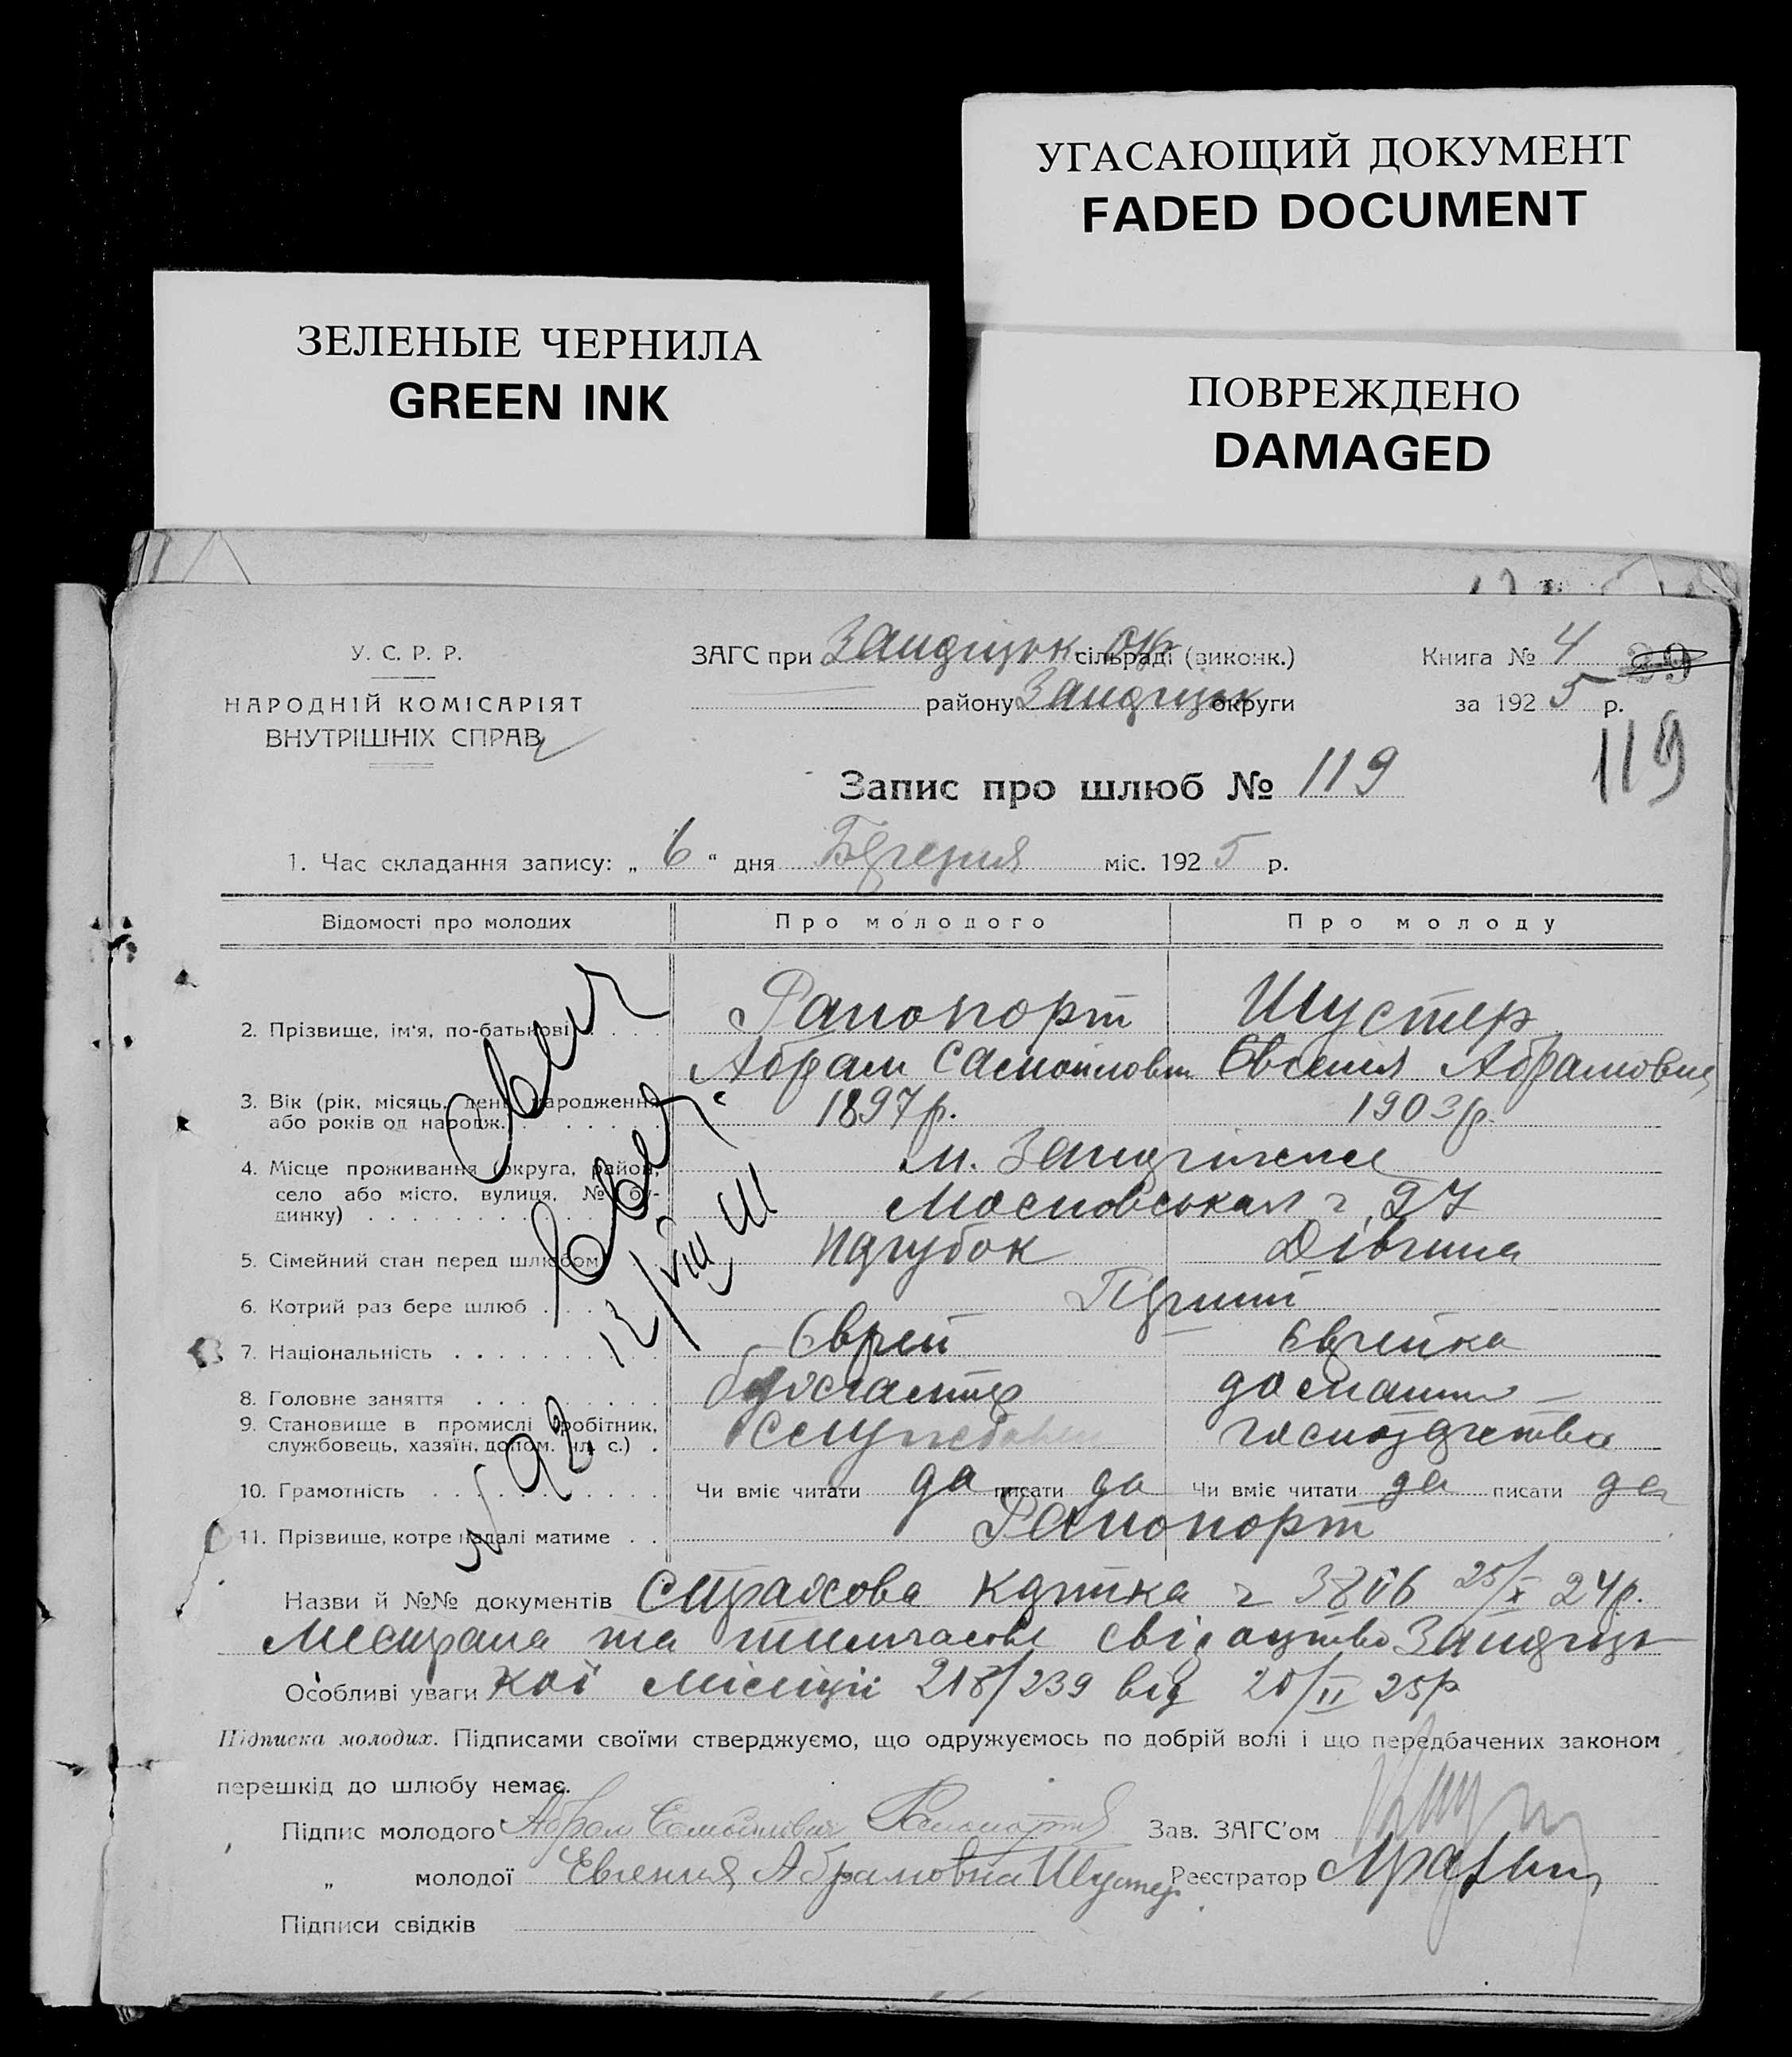 УГАСАЮЩИЙ ДОКУМЕНТ
FADED DOCUMENT
ЗЕЛЕНЫЕ ЧЕРНИЛА
GREEN INK
ПОВРЕЖДЕНО
DAMAGED
У. С. Р. Р.
НАРОДНІЙ КОМІСАРІЯТ
ВНУТРІШНІХ СПРАВ
ЗАГС при сільраді (виконк.)
району округи
Книга № 4 29
за 1925 р.
119
Запис про шлюб № 119
1. Час складання запису: „ 6 " дня Березня міс. 1925 р.
Відомості про молодих Про молодого Про молоду
2. Прізвище, ім'я, по-батькові Рапопорт Шустер
Абрам Самойлович Євгенія Абрамовна
3. Вік (рік, місяць, день народження або років од народж. 1897 р. 1903 р.
4. Місце проживання (округа, район, село або місто, вулиця, № бу-динку) м.
Московськая 27
5. Сімейний стан перед шлюбом Парубок Дівчина
6. Котрий раз бере шлюб Перший
7. Національність Єврей Єврейка
8. Головне заняття домашнє
9. Становище в промислі (робітник, службовець, хазяїн, допом. чл. с.)
10. Грамотність Чи вміє читати да писати да Чи вміє читати да писати да
11. Прізвище, котре надалі матиме Рапопорт
Назви й №№ документів Страхова картка 3806 25/X 24р.
та тимчасове свідоцтво
Особливі уваги кої міліції 218/239 від 20/II 25р
Підписка молодих. Підписами своїми стверджуємо, що одружуємось по добрій волі і що передбачених законом
перешкід до шлюбу немає.
Підпис молодого Абрам Самойлович Рапопорт Зав. ЗАГС'ом
„ молодої Евгения Абрамовна Шустер Реєстратор
Підписи свідків